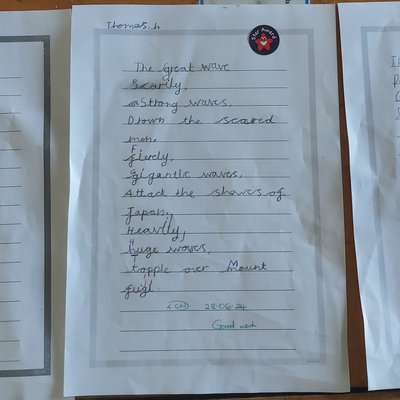 Thomas.h
Star Award
The great wave
Scarlly,
Strong waves,
Drown the scared
men,
Fircly,
gigantic waves,
Attack the shores of
Japan,
Heavily,
huge waves,
topple over Mount
fuji.
28.06.24
Good work